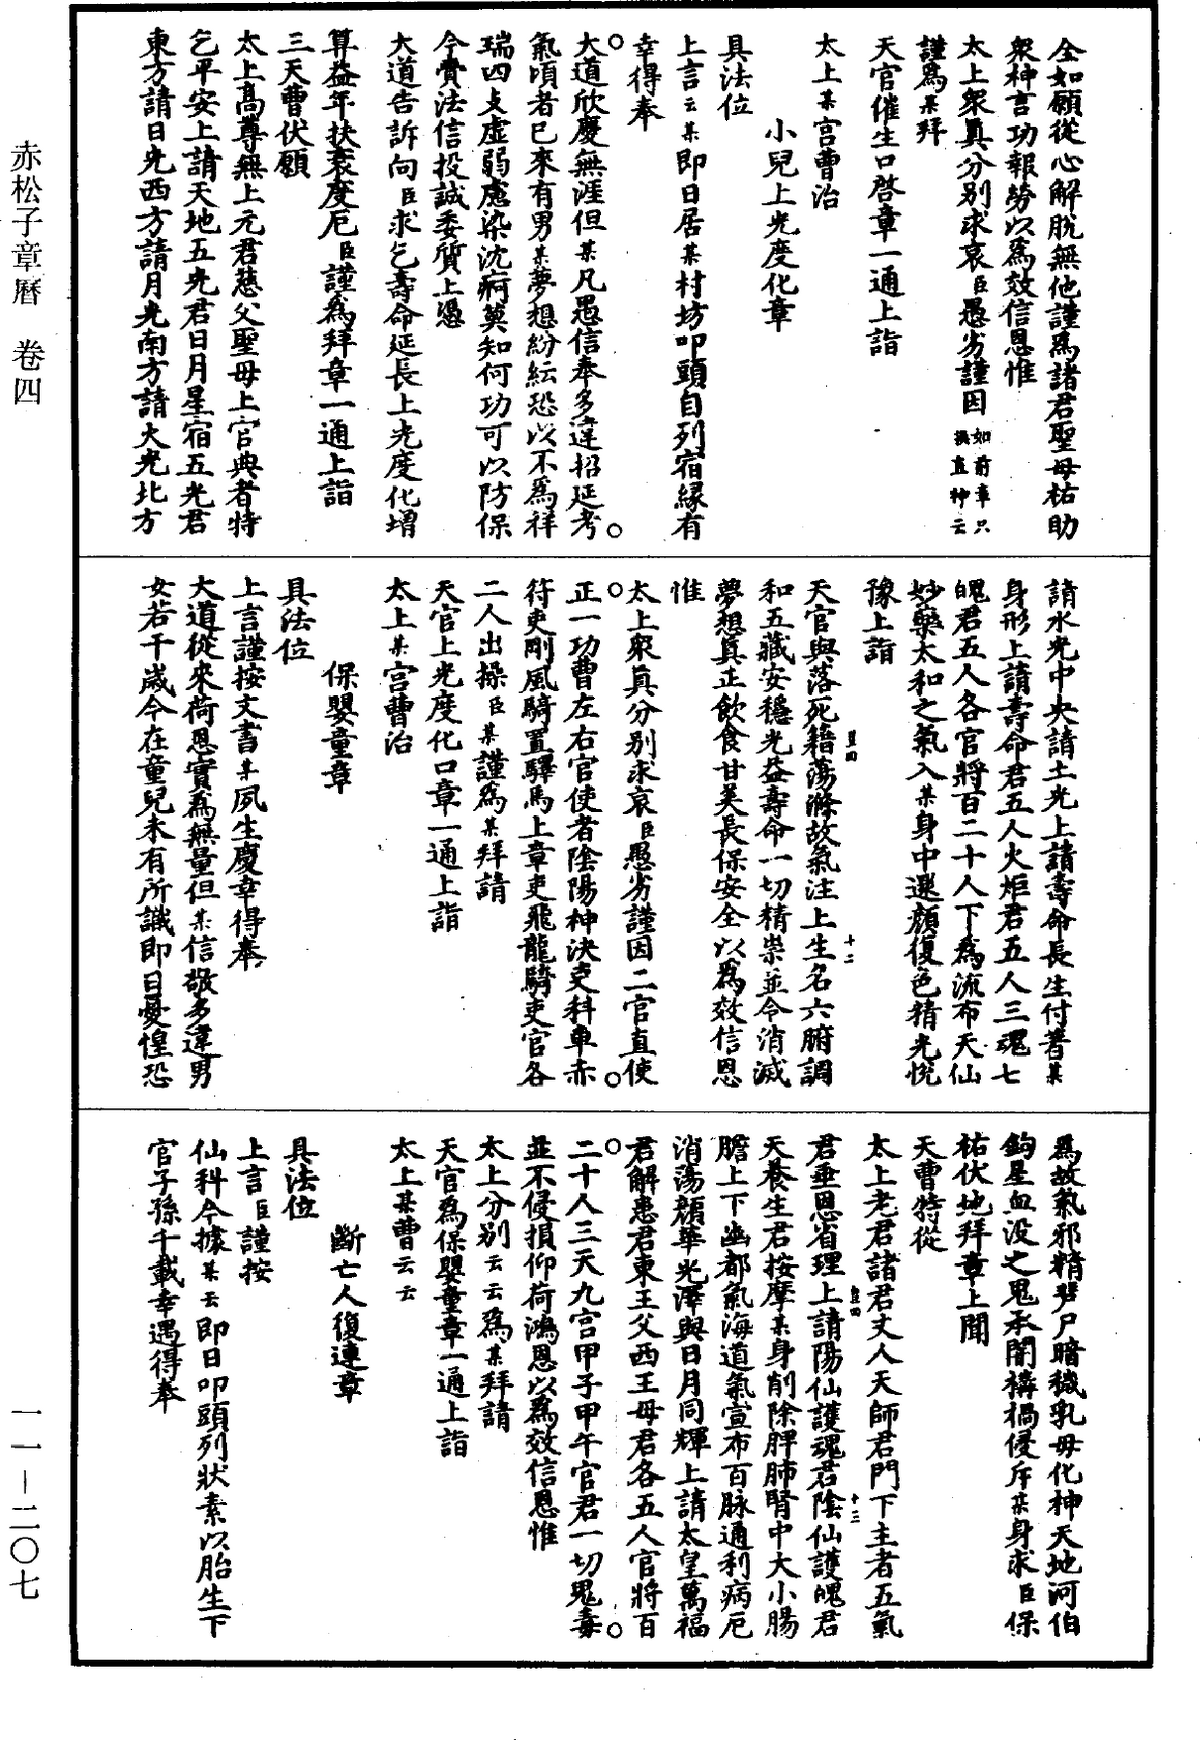 全如願從心解脫無他謹爲諸君聖母祐助
衆神言功報勞以爲效信恩惟
太上衆眞分別求哀臣愚劣謹因如前章只撰直神云
謹爲某拜
天官催生口啓章一通上詣
太上某宮曹治
小兒上光度化章
具法位
上言云某即日居某村坊叩頭自列宿緣有
幸得奉
大道欣慶無涯但某凡愚信奉多違招延考
氣頃者已來有男某夢想紛紜恐以不爲祥
瑞四支虛弱慮染沈痾莫知何功可以防保
今賫法信投誠委質上憑
大道告訴向臣求乞壽命延長上光度化增
算益年扶衰度厄臣謹爲拜章一通上詣
三天曹伏願
太上高尊無上元君慈父聖母上官典者特
乞平安上請天地五光君日月星宿五光君
東方請日光西方請月光南方請火光北方
請水光中央請土光上請壽命長生付著某
身形上請壽命君五人火炬君五人三魂七
魄君五人各官將百二十人下爲流布天仙
妙藥太和之氣入某身中還顏復色精光悅
豫上詣
天官與落死籍蕩滌故氣注上生名六腑調
和五藏安穩光益壽命一切精祟並令消滅
夢想眞正飲食甘美長保安全以爲效信恩
惟
太上衆眞分別求哀臣愚劣謹因二官直使
正一功曹左右官使者陰陽神決吏科車赤
符吏剛風騎置驛馬上章吏飛龍騎吏官各
二人出操臣某謹爲某拜請
天官上光度化口章一通上詣
太上某宮曹治
保嬰童章
具法位
上言謹按文書某夙生慶幸得奉
大道從來荷恩實爲無量但某信敬多違男
女若干歲今在童兒未有所識即日憂惶恐
爲故氣邪精殗尸暗穢乳母化神天地河伯
鉤星血沒之鬼承閒構禍侵斥某身求臣保
祐伏地拜章上聞
天曹特從
太上老君諸君丈人天師君門下主者五氣
君垂恩省理上請陽仙護魂君陰仙護魄君
天養生君按摩某身削除脾肺腎中大小腸
膽上下幽都氣海道氣宣布百脉通利病厄
消蕩顏華光澤與日月同輝上請太皇萬福
君解患君東王父西王母君各五人官將百
二十人三天九宮甲子甲午官君一切鬼毒
並不侵損仰荷鴻恩以爲效信恩惟
太上分別云云爲某拜請
天官爲保嬰童章一通上詣
太上某曹云云
斷亡人復連章
具法位
上言臣謹按
仙科今據某云即日叩頭列狀素以胎生下
官子孫千載幸遇得奉
赤松子章曆　卷四
一一－二〇七